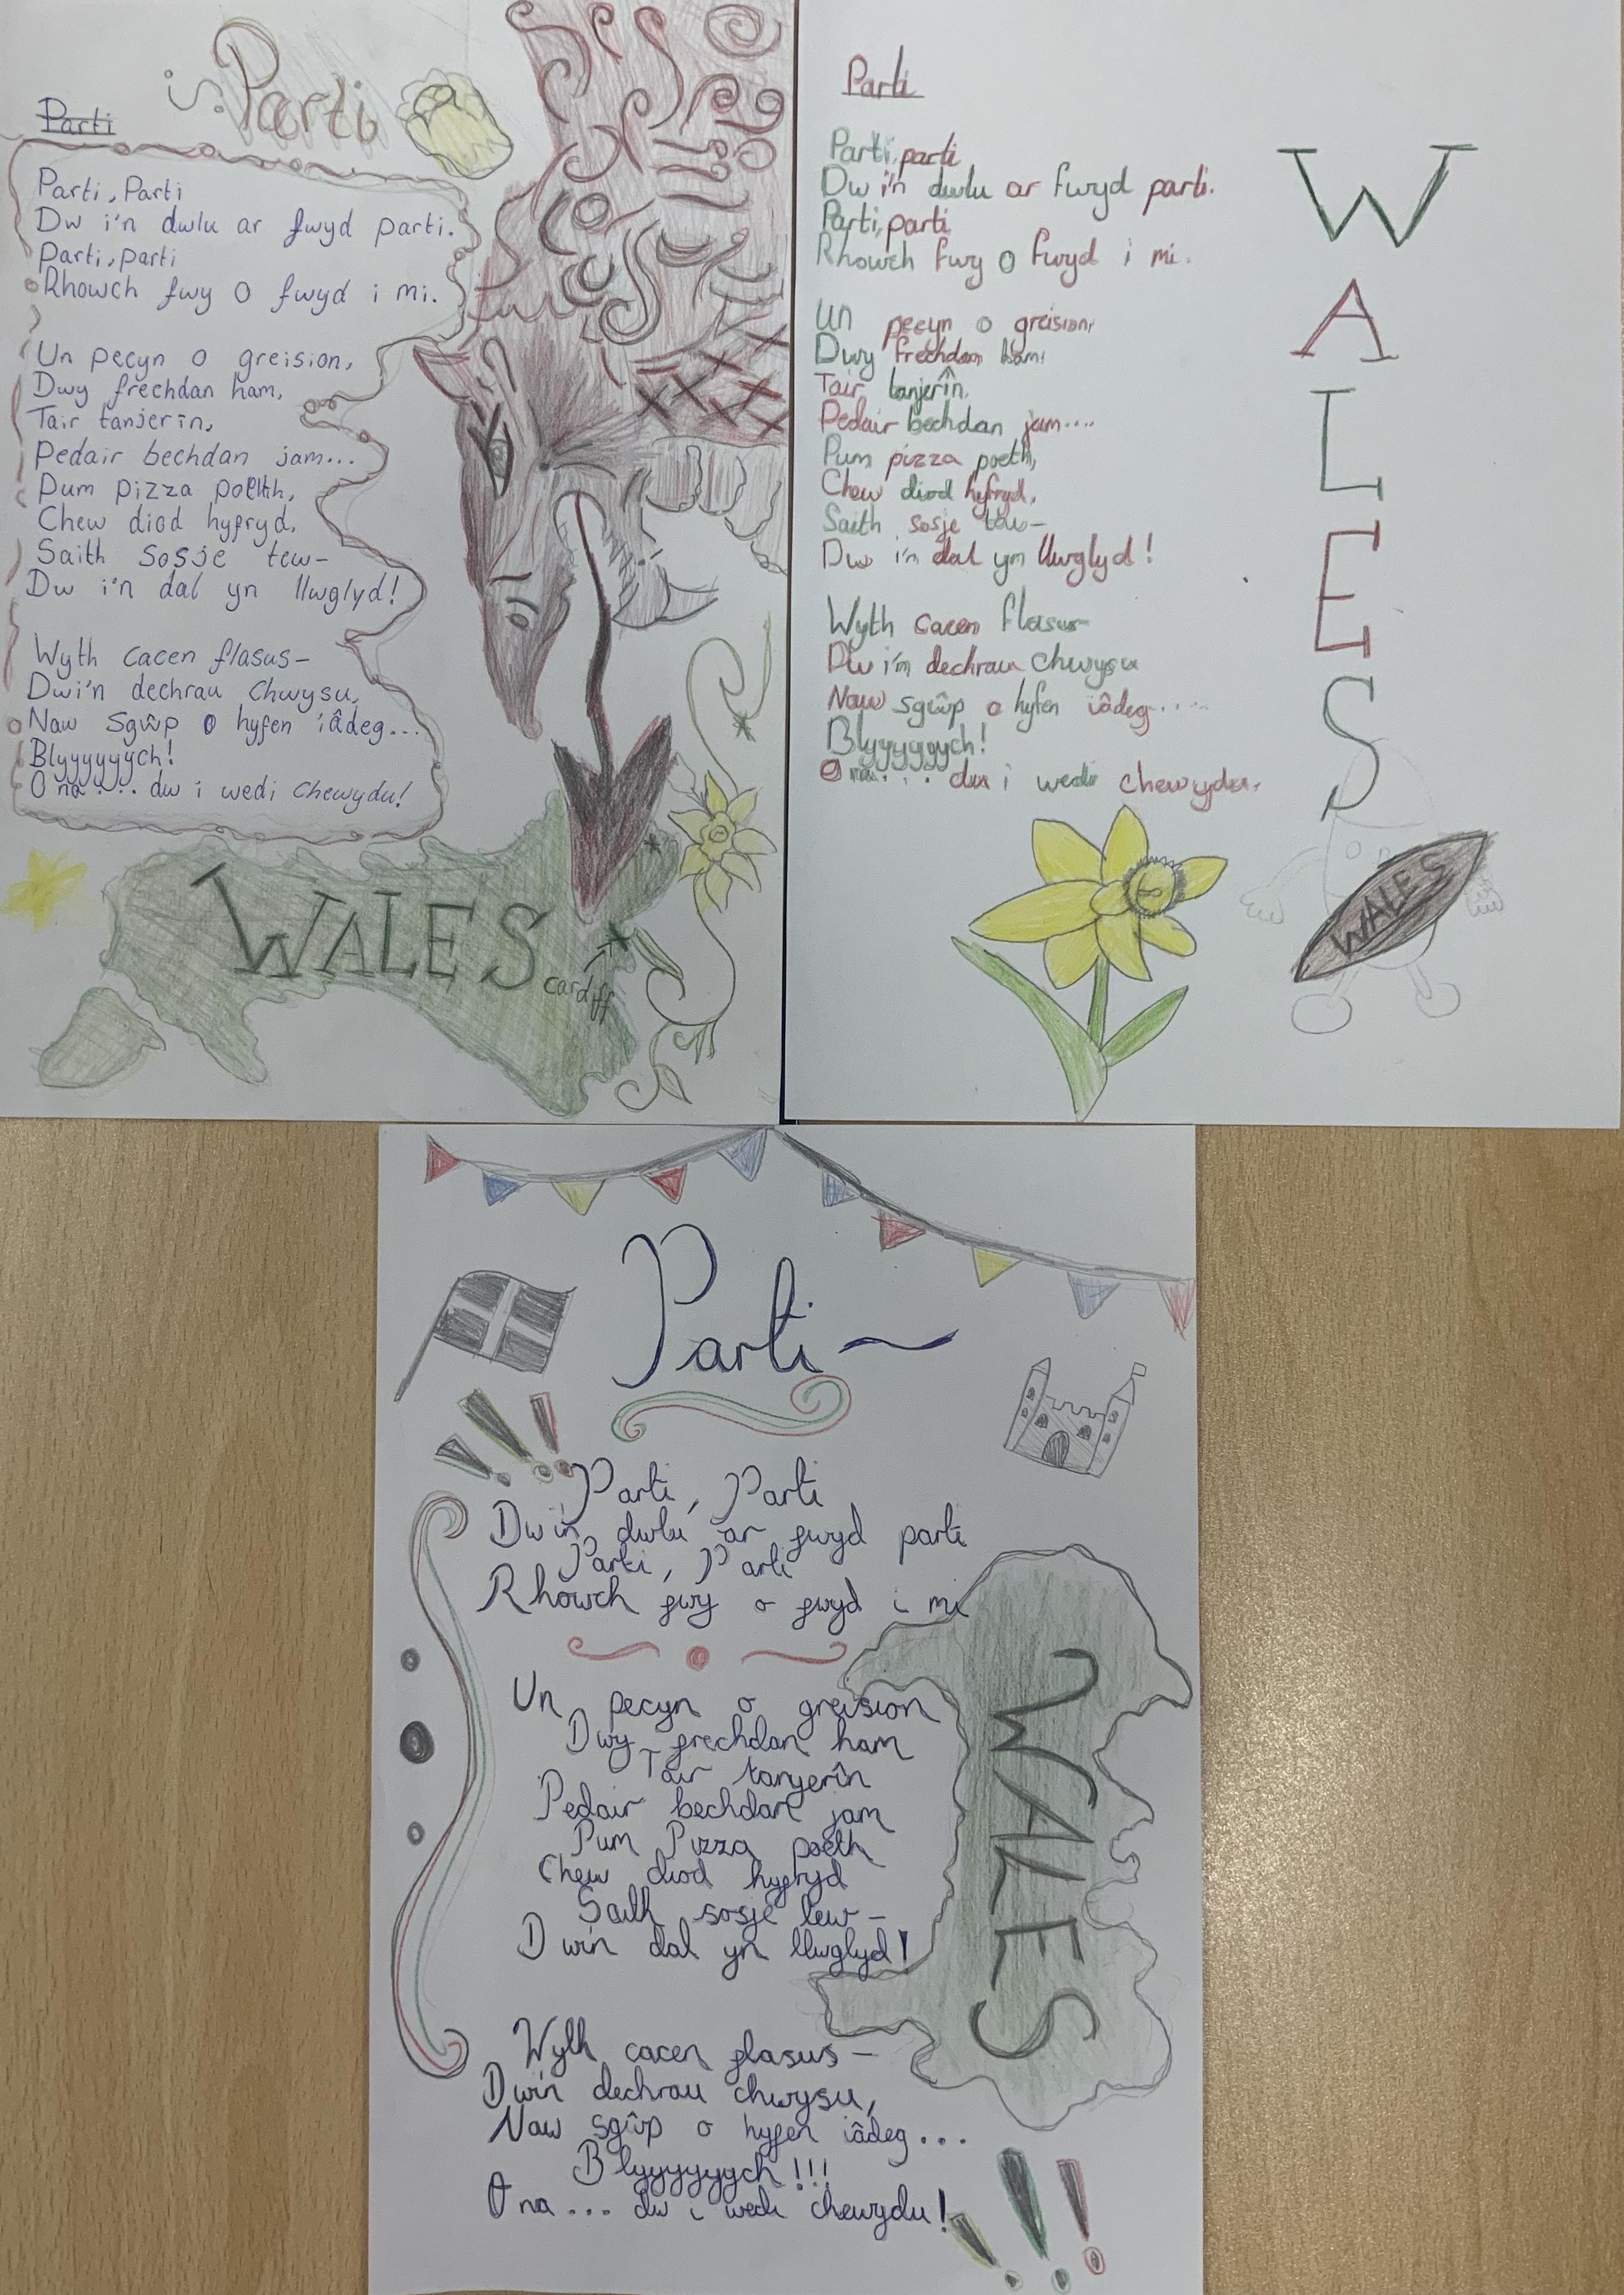 Parti
Parti
Parti, Parti
Dw i'n dwlu ar fwyd parti.
Parti, parti
Rhowch fwy o fwyd i mi.
Un pecyn o greision,
Dwy frechdan ham,
Tair tanjerin,
Pedair bechdan jam...
Pum pizza poeth,
Chew diod hyfryd,
Saith sosje tew-
Dw i'n dal yn llwglyd!
Wyth cacen flasus-
Dwi'n dechrau chwysu,
Naw sgŵp o hyfen iâdeg...
Blyyyyyych!
O na.... dw i wedi chewydu!
WALES
cardiff
Parti
Parti, parti
Dw i'n dwlu ar fwyd parti.
Parti, parti
Rhowch fwy o fwyd i mi.
Un pecyn o greision,
Dwy frechdan ham,
Tair tanjerîn,
Pedair bechdan jam....
Pum pizza poeth,
Chew diod hyfryd,
Saith sosje tew-
Dw i'n dal yn llwglyd!
Wyth cacen flasus-
Dw i'n dechrau chwysu
Naw sgŵp o hyfen iâdeg.....
Blyyyyyych!
O na.... dw i wedi chewydu.
WALES
WALES
Parti~
Parti, Parti
Dw i'n dwlu ar fwyd parti
Parti, Parti
Rhowch fwy o fwyd i mi
Un pecyn o greision
Dwy frechdan ham
Tair tanyerîn
Pedair bechdan jam
Pum Pizza poeth
Chew diod hyfryd
Saith sosje tew-
Dwi'n dal yn llwglyd!
Wyth cacen flasus-
Dwi'n dechrau chwysu,
Naw sgŵp o hyfen iâdeg...
Blyyyyyych!!!
O na... dw i wedi chewydu!
WALES